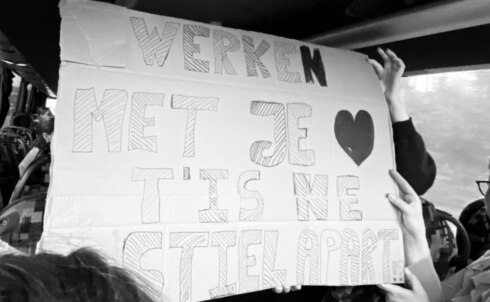 WERKEN
MET JE ♥
T'IS WE
STIEL APART!